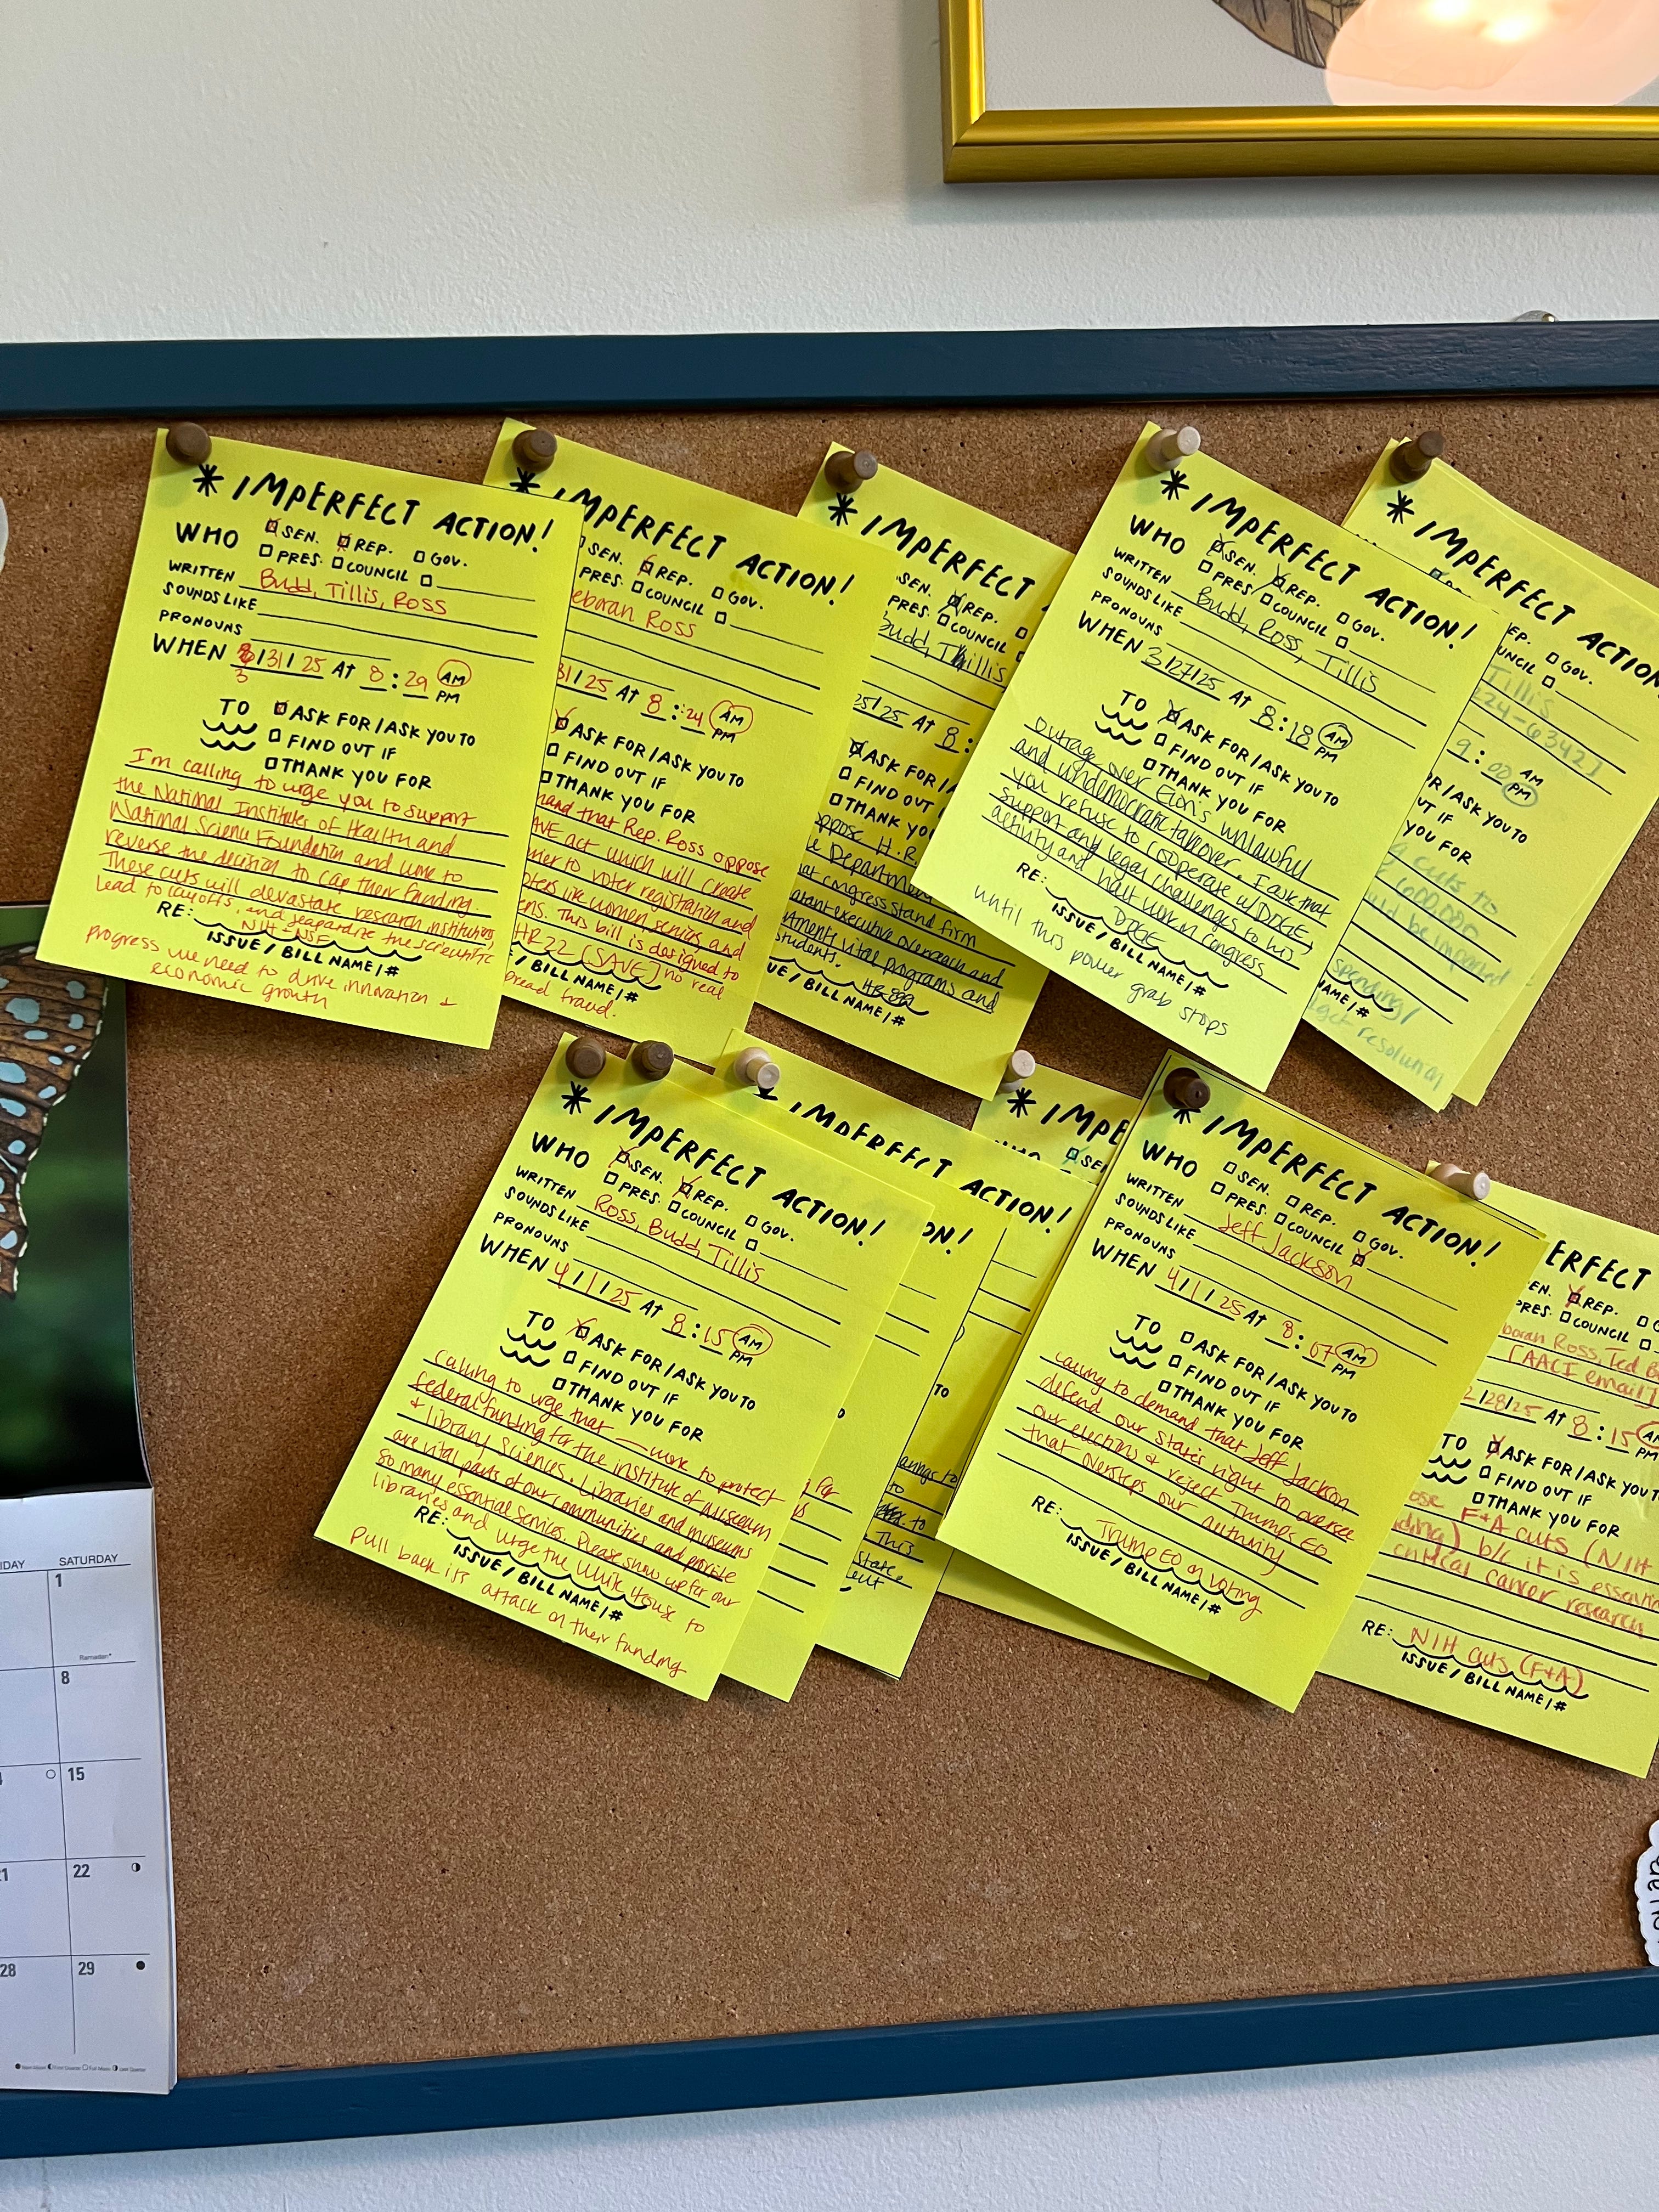 * IMPERFECT ACTION!
WHO SEN. REP. GOV.
PRES. COUNCIL
WRITTEN Budd, Tillis, Ross
SOUNDS LIKE
PRONOUNS
WHEN 3/31/25 AT 8:29 AM
PM
TO ASK FOR/ASK YOU TO
FIND OUT IF
THANK YOU FOR
I'm calling to urge you to support
the National Institutes of Health and
National Science Foundation and work to
reverse the decision to cap their funding.
These cuts will devastate research institutions,
lead to layoffs, and jeapardize the scientific
RE: NIH NSF
ISSUE/BILL NAME/#
progress we need to drive innovation +
economic growth
* IMPERFECT ACTION!
SEN. REP. GOV.
PRES. COUNCIL
eborah Ross
31/25 AT 8:24 AM
PM
ASK FOR/ASK YOU TO
FIND OUT IF
THANK YOU FOR
mand that Rep. Ross oppose
AVE act which will create
rier to voter registration and
oters like women, seniors, and
ens. This bill is designed to
HR22 (SAVE) no real
E/BILL NAME/#
pread fraud.
* IMPERFECT
SEN. REP.
PRES. COUNCIL
Budd, Tillis
25/25 AT 8:
ASK FOR/A
FIND OUT
THANK YOU
ppose H.R.
e Departmen
at congress stand firm
atant executive overreach and
tment's vital programs and
students.
HR 899
UE/BILL NAME/#
* IMPERFECT ACTION!
WHO SEN. REP. GOV.
PRES. COUNCIL
WRITTEN Budd, Ross, Tillis
SOUNDS LIKE
PRONOUNS
WHEN 3/27/25 AT 8:18 AM
PM
TO ASK FOR/ASK YOU TO
FIND OUT IF
THANK YOU FOR
Outrage over Elon's unlawful
and undemocratic takeover. I ask that
you refuse to cooperate w/DOGE,
support any legal challenges to his
activity and halt work in congress
RE: DOGE
ISSUE/BILL NAME/#
until this power grab stops
* IMPERFECT ACTION
EP. GOV.
UNCIL
Tillis
224-6342]
9:00 AM
PM
OR/ASK YOU TO
UT IF
YOU FOR
cuts to
600,000
uld be impacted
spending/
NAME/#
get resolution
* IMPERFECT ACTION!
WHO SEN. REP. GOV.
PRES. COUNCIL
WRITTEN Ross, Budd, Tillis
SOUNDS LIKE
PRONOUNS
WHEN 4/1/25 AT 8:15 AM
PM
TO ASK FOR/ASK YOU TO
FIND OUT IF
THANK YOU FOR
Calling to urge that ___ work to protect
federal funding for the institute of museum
+ library sciences. Libraries and museums
are vital parts of our communities and provide
so many essential services. Please show up for our
libraries and urge the White House to
RE:
ISSUE/BILL NAME/#
Pull back its attack on their funding
ON!
for
IMPERFECT ACTION!
TO
to
This
State
* IMPE
SEN
* IMPERFECT ACTION!
WHO SEN. REP. GOV.
PRES. COUNCIL
WRITTEN Jeff Jackson
SOUNDS LIKE
PRONOUNS
WHEN 4/1/25 AT 8:07 AM
PM
TO ASK FOR/ASK YOU TO
FIND OUT IF
THANK YOU FOR
calling to demand that Jeff Jackson
defend our state's right to oversee
our elections & reject Trumps EO
that oversteps our authority
RE: Trump EO on voting
ISSUE/BILL NAME/#
ERFECT
EN. REP.
PRES. COUNCIL
borah Ross, Ted B
[AACI email]
2/28/25 AT 8:15 AM
PM
TO ASK FOR/ASK YOU T
FIND OUT IF
THANK YOU FOR
ose F+A cuts (NIH
ding) b/c it is essenti
critical cancer research
RE: NIH cuts (F+A)
ISSUE/BILL NAME/#
IDAY SATURDAY
1
Ramadan*
8
15
22
28 29
New Moon First Quarter Full Moon Last Quarter